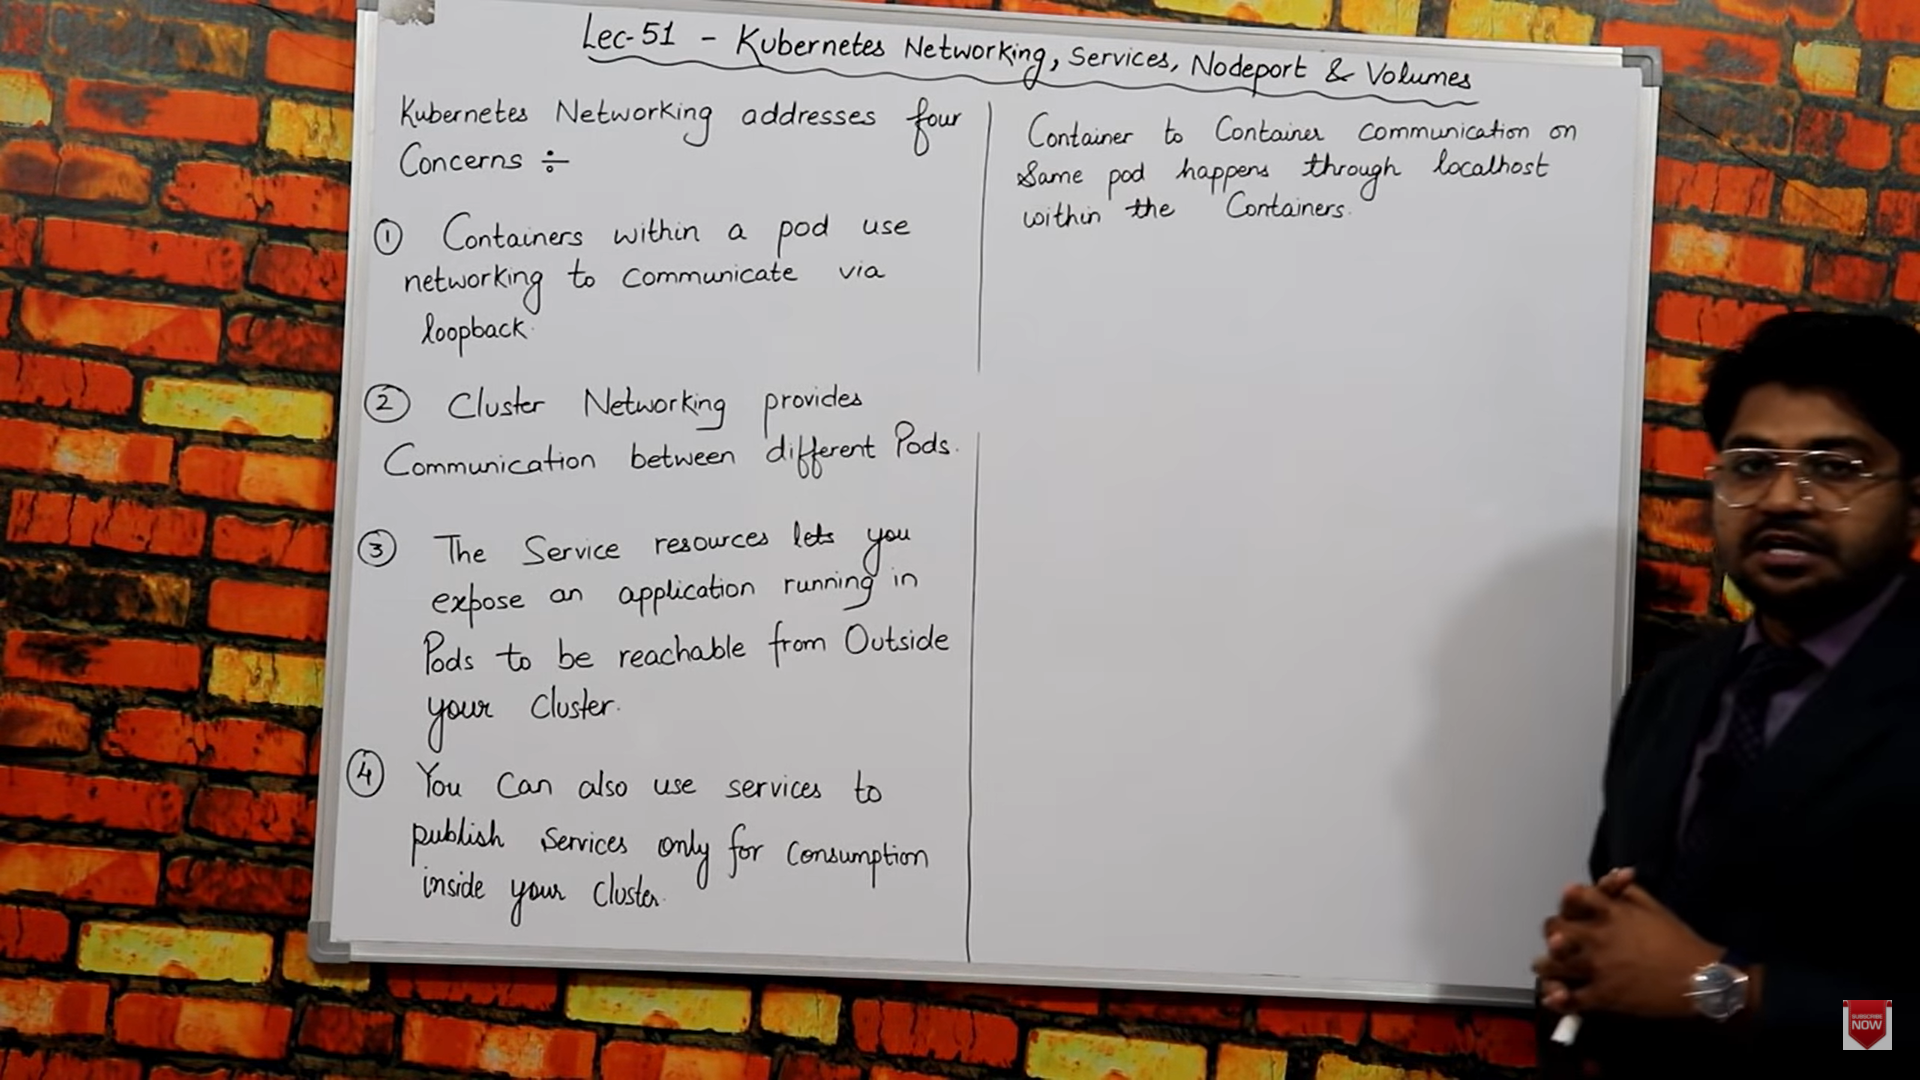 Lec-51 - Kubernetes Networking, Services, Nodeport & Volumes
Kubernetes Networking addresses four
Concerns ÷
① Containers within a pod use
networking to communicate via
loopback.
② Cluster Networking provides
Communication between different Pods.
③ The Service resources lets you
expose an application running in
Pods to be reachable from Outside
your Cluster.
④ You Can also use services to
publish Services only for Consumption
inside your Cluster.
Container to Container communication on
Same pod happens through localhost
within the Containers.
SUBSCRIBE
NOW